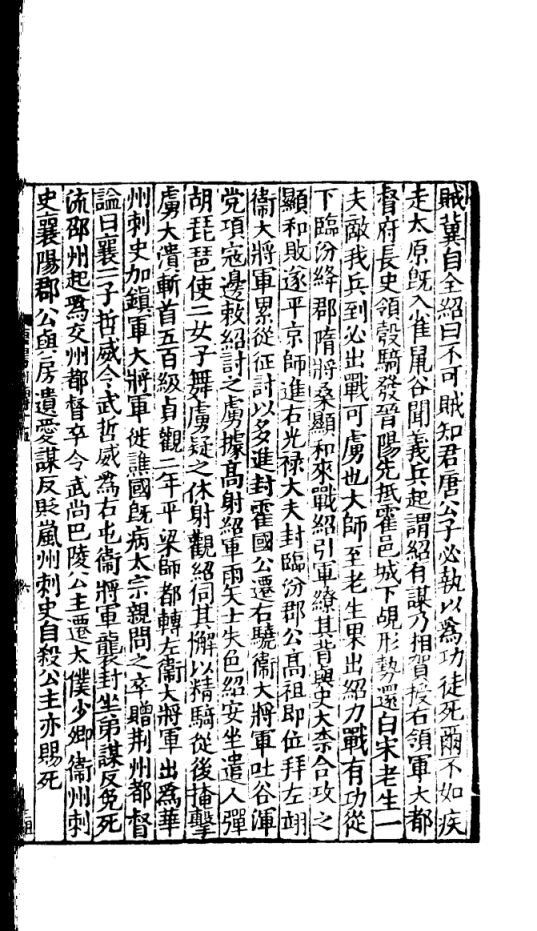 賊冀自全紹曰不可賊知君唐公子必執以爲功徒死爾不如疾
走太原既入雀鼠谷聞義兵起謂紹有謀乃相賀授右領軍大都
督府長史領骰騎發晉陽先抵霍邑城下覘形勢還白宋老生一
夫敵我兵到必出戰可虜也大師至老生果出紹力戰有功從
下臨汾絳郡隋將桑顯和來戰紹引軍繚其背與史大柰合攻之
顯和敗遂平京師進右光禄大夫封臨汾郡公髙祖即位拜左翊
衞大將軍累從征討以多進封霍國公遷右驍衞大將軍吐谷渾
党項寇邊敕紹討之虜據髙射紹軍雨矢士失色紹安坐遣人彈
胡琵琶使二女子舞虜疑之休射觀紹伺其懈以精騎從後掩擊
虜大潰斬首五百級貞觀二年平梁師都轉左衞大將軍出爲華
州刺史加鎮軍大將軍徙譙國既病太宗親問之卒贈荆州都督
謚曰襄二子哲威令武哲威爲右屯衞將軍襲封坐弟謀反免死
流邵州起爲交州都督卒令武尚巴陵公主遷太僕少卿衞州刺
史襄陽郡公與房遺愛謀反貶嵐州刺史自殺公主亦賜死